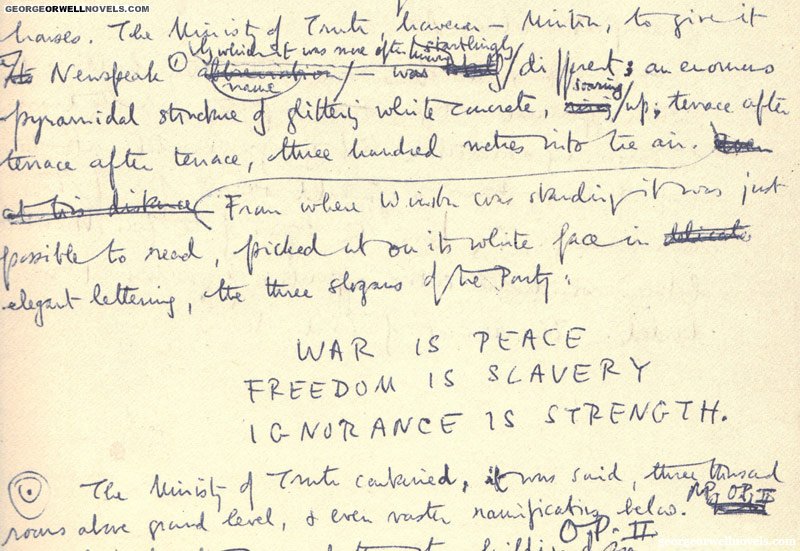 GEORGEORWELLNOVELS.COM
houses. The Ministy of Truth, however – Minitru, to give it
by which it was more often known startlingly
its Newspeak ① abbreviation / – was / different; an enormous
name soaring
pyramidal structure of glittering white concrete, rising / up, terrace after
terrace after terrace, three hundred metres into the air. Even
at this distance From where Winston was standing it was just
possible to read, picked out on its white face in delicate
elegant lettering, the three slogans of the Party:
WAR IS PEACE
FREEDOM IS SLAVERY
IGNORANCE IS STRENGTH.
The Ministry of Truth contained, it was said, three thousand
rooms above ground level, & even vaster ramifications below.
O.P. II
georgeorwellnovels.com